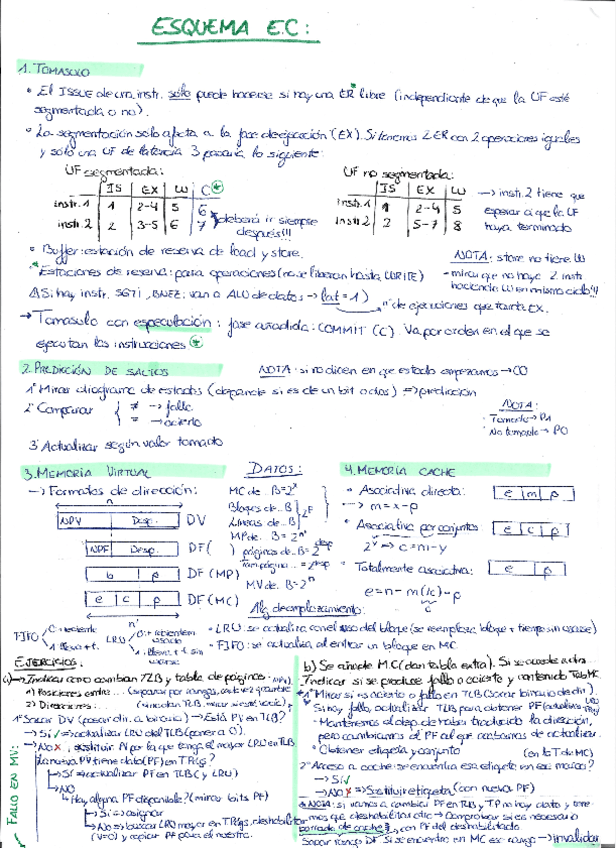 ESQUEMA E.C:
1. TOMASULO
• El ISSUE de una instr. sólo puede hacerse si hay una ER libre (independiente de que la UF esté
segmentada o no).
• La segmentación solo afecta a la fase de ejecución (EX). Si tenemos 2 ER con 2 operaciones iguales
y sólo una UF de latencia 3 pasaría lo siguiente:
UF segmentada:
IS EX W C
instr.1 1 2-4 5 6
instr.2 2 3-5 6 7
deberá ir siempre
después!!!
UF no segmentada:
IS EX W
instr.1 1 2-4 5
instr.2 2 5-7 8
→ instr.2 tiene que
esperar a que la UF
haya terminado
• Buffer: estación de reserva de load y store.
NOTA: store no tiene W
• Estaciones de reserva: para operaciones (no se liberan hasta WRITE)
- mirar que no haya 2 instr.
haciendo W en mismo ciclo!!!
⚠ Si hay instr. SGTI, BNEZ: van a ALU de datos → (lat = 1)
nº de ejecuciones que tarda EX.
→ Tomasulo con especulación: fase añadida: COMMIT (C). Va por orden en el que se
ejecutan las instrucciones
2. PREDICCIÓN DE SALTOS
NOTA: si no dicen en que estado empezamos → 00
1º Mirar diagrama de estados (depende si es de un bit o dos) ⇒ predicción
2º Comparar { ≠ → fallo
= → acierto
3º Actualizar según valor tomado
NOTA:
Tomado → P1
No tomado → P0
3. MEMORIA VIRTUAL
→ Formatos de dirección:
n
NPV Desp. DV
NPF Desp. DF( )
b p DF (MP)
e c p DF (MC)
n'
DATOS:
MC de.. B = 2ˣ
Bloques de.. B
Líneas de.. B
2ᴾ
MP de.. B = 2ⁿ'
páginas de.. B = 2ᵈᵉˢᵖ
MV de.. B = 2ⁿ
4. MEMORIA CACHE
• Asociativa directa: e m p
→ m = x - p
• Asociativa por conjuntos: e c p
2ʸ → c = m - y
• Totalmente asociativa: e p
e = n - m(/c) - p
Alg de emplazamiento:
• LRU: se actualiza con el uso del bloque (se reemplaza bloque + tiempo sin usarse)
• FIFO: se actualiza al entrar un bloque en MC
FIFO
LRU
EJERCICIOS:
→ Indicar como cambian TLB y tabla de páginas
1º Sacar DV (pasar dir. a binario) → Está PV en TLB?
→ Sí → actualizar LRU del TLB (poner a 0).
→ No x, sustituir PV por la que tenga el mayor LRU en TLB
La nueva PV tiene dato (PF) en TPágs?
→ Sí ⇒ actualizar PF en TLB (y LRU)
→ NO
→ Hay alguna PF disponible? (mirar bits PF)
→ Sí ⇒ asignar
→ No ⇒ buscar LRU mayor en TPágs, deshabilitar
(V=0) y copiar PF para el nuestro.
FALLO EN MV:
b) Se añade M.C (dan tabla extra).
Indicar si se produce fallo o acierto y contenido
1º Mirar si es acierto o fallo en TLB (sacar binario de dir).
Si hay fallo, actualizar TLB para obtener PF
Mantenemos el desp de haber traducido la dirección,
pero cambiamos el PF al que acabamos de actualizar.
• Obtener etiqueta y conjunto (en la T de MC)
2º Acceso a caché: se encuentra esa etiqueta en ese marco?
→ Sí
→ No x ⇒ Sustituir etiqueta (con nueva PF)
NOTA: si vamos a cambiar PF en TLB y TP no hay dato y tene-
mos que deshabilitar otro → Comprobar si es necesario
borrado de caché, con PF del deshabilitado
Sacar rango DF Si se encuentra en MC ese rango → invalidar